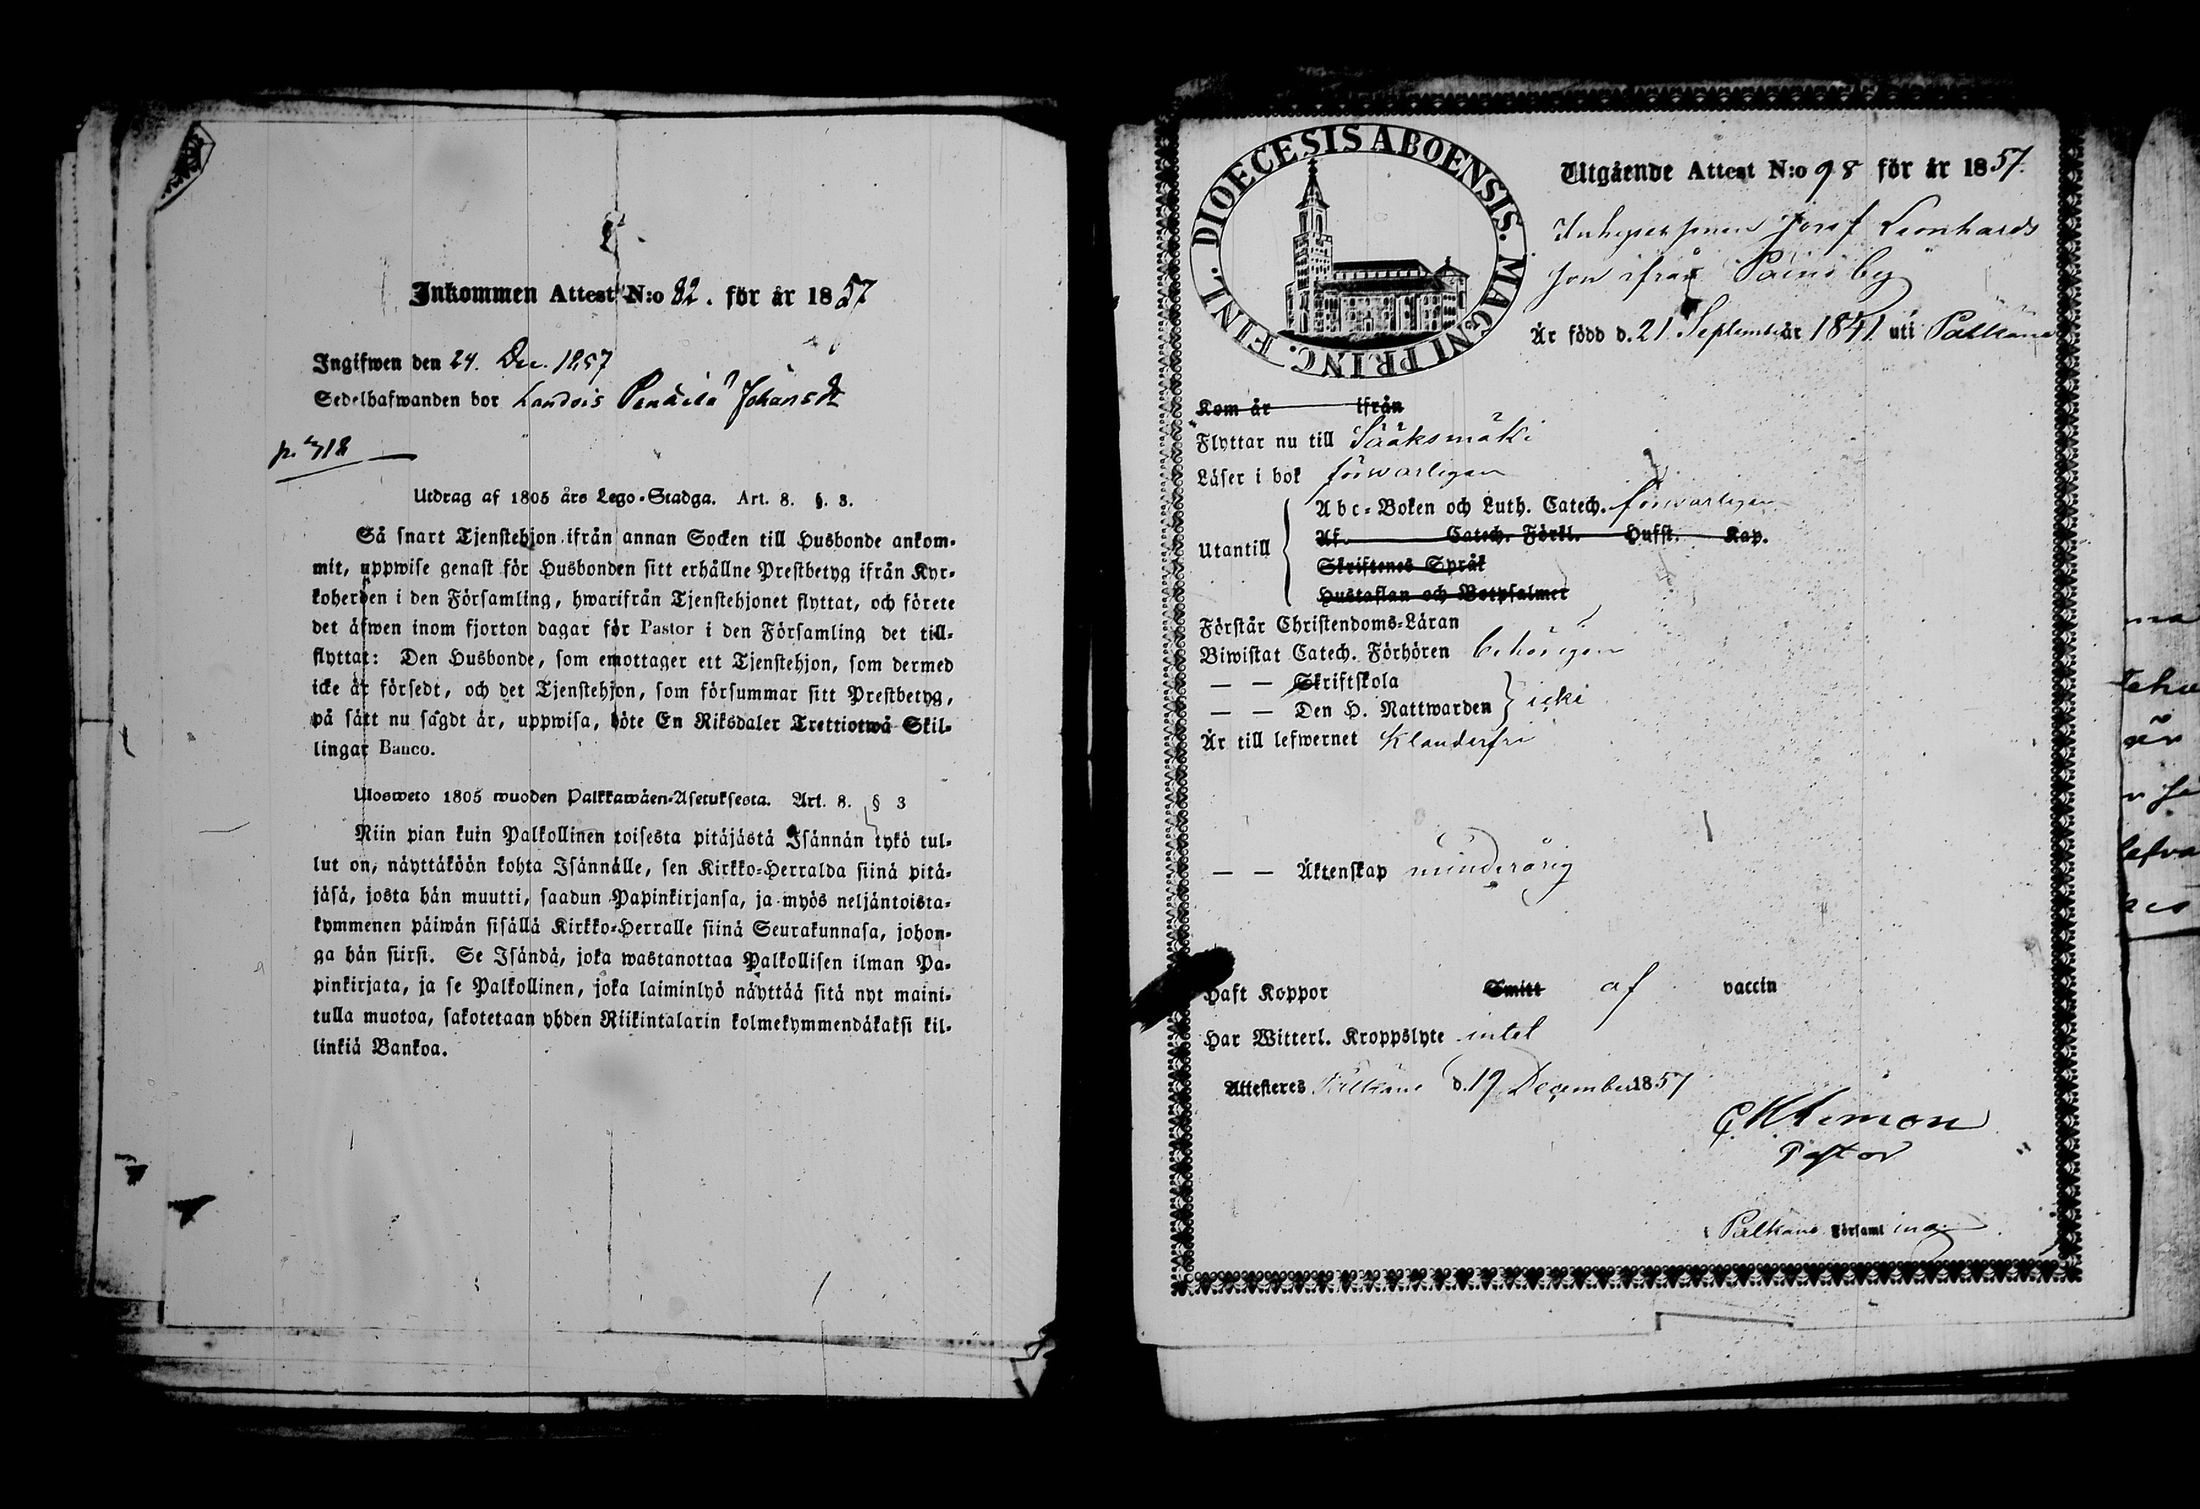 Inkommen Attest N:o 82. för år 1857
Ingifwen den 24. Dec. 1857
Sedelhafwanden bor Landois Penkilä Johansdt
p. 718
Utdrag af 1805 års Lego-Stadga. Art. 8. §. 3.
Så snart Tjenstehjon ifrån annan Socken till Husbonde ankom-
mit, uppwise genast för Husbonden sitt erhållne Prestbetyg ifrån Kyr-
koherden i den Församling, hwarifrån Tjenstehjonet flyttat, och förete
det äfwen inom fjorton dagar för Pastor i den Församling det till-
flyttat: Den Husbonde, som emottager ett Tjenstehjon, som dermed
icke är försedt, och det Tjenstehjon, som försummar sitt Prestbetyg,
på sätt nu sagdt är, uppwisa, böte En Riksdaler Trettiotwå Skil-
lingar Banco.
Ulosweto 1805 wuoden Palkkawäen-Asetuksesta. Art. 8. § 3
Niin pian kuin Palkollinen toisesta pitäjästä Isännän tykö tul-
lut on, näyttäköön kohta Isännälle, sen Kirkko-Herralda siinä pitä-
jäsä, josta hän muutti, saadun Papinkirjansa, ja myös neljäntoista-
kymmenen päiwän sisällä Kirkko-Herralle siinä Seurakunnasa, johon-
ga hän siirsi. Se Isändä, joka wastanottaa Palkollisen ilman Pa-
pinkirjata, ja se Palkollinen, joka laiminlyö näyttää sitä nyt maini-
tulla muotoa, sakotetaan yhden Riikintalarin kolmekymmendäkaksi kil-
linkiä Bankoa.
DIOECESIS ABOENSIS. MAGNI PRINC. FINL.
Utgående Attest N:o 98 för år 1857.
Inhysespinen Josef Leonhards
son ifrån Painoby
Är född d. 21 September år 1841 uti Pälkäne
Kom år ifrån
Flyttar nu till Sääksmäki
Läser i bok försvarligen
Utantill
Abc-Boken och Luth. Catech. försvarligen
Af Catech. Förkl. Husst. Kap.
Skriftenes Språk
Hustaflan och Botpsalmer
Förstår Christendoms-Läran
Biwistat Catech. Förhören behörigen
— — Skriftskola
— — Den H. Nattwarden icke
Är till lefwernet Klanderfri
— — Äktenskap minderårig
Haft Koppor Smitt af vaccin
Har Witterl. Kroppslyte intet
Attesteres Pälkäne d. 19 December 1857
Pastor
i Pälkäne Församling